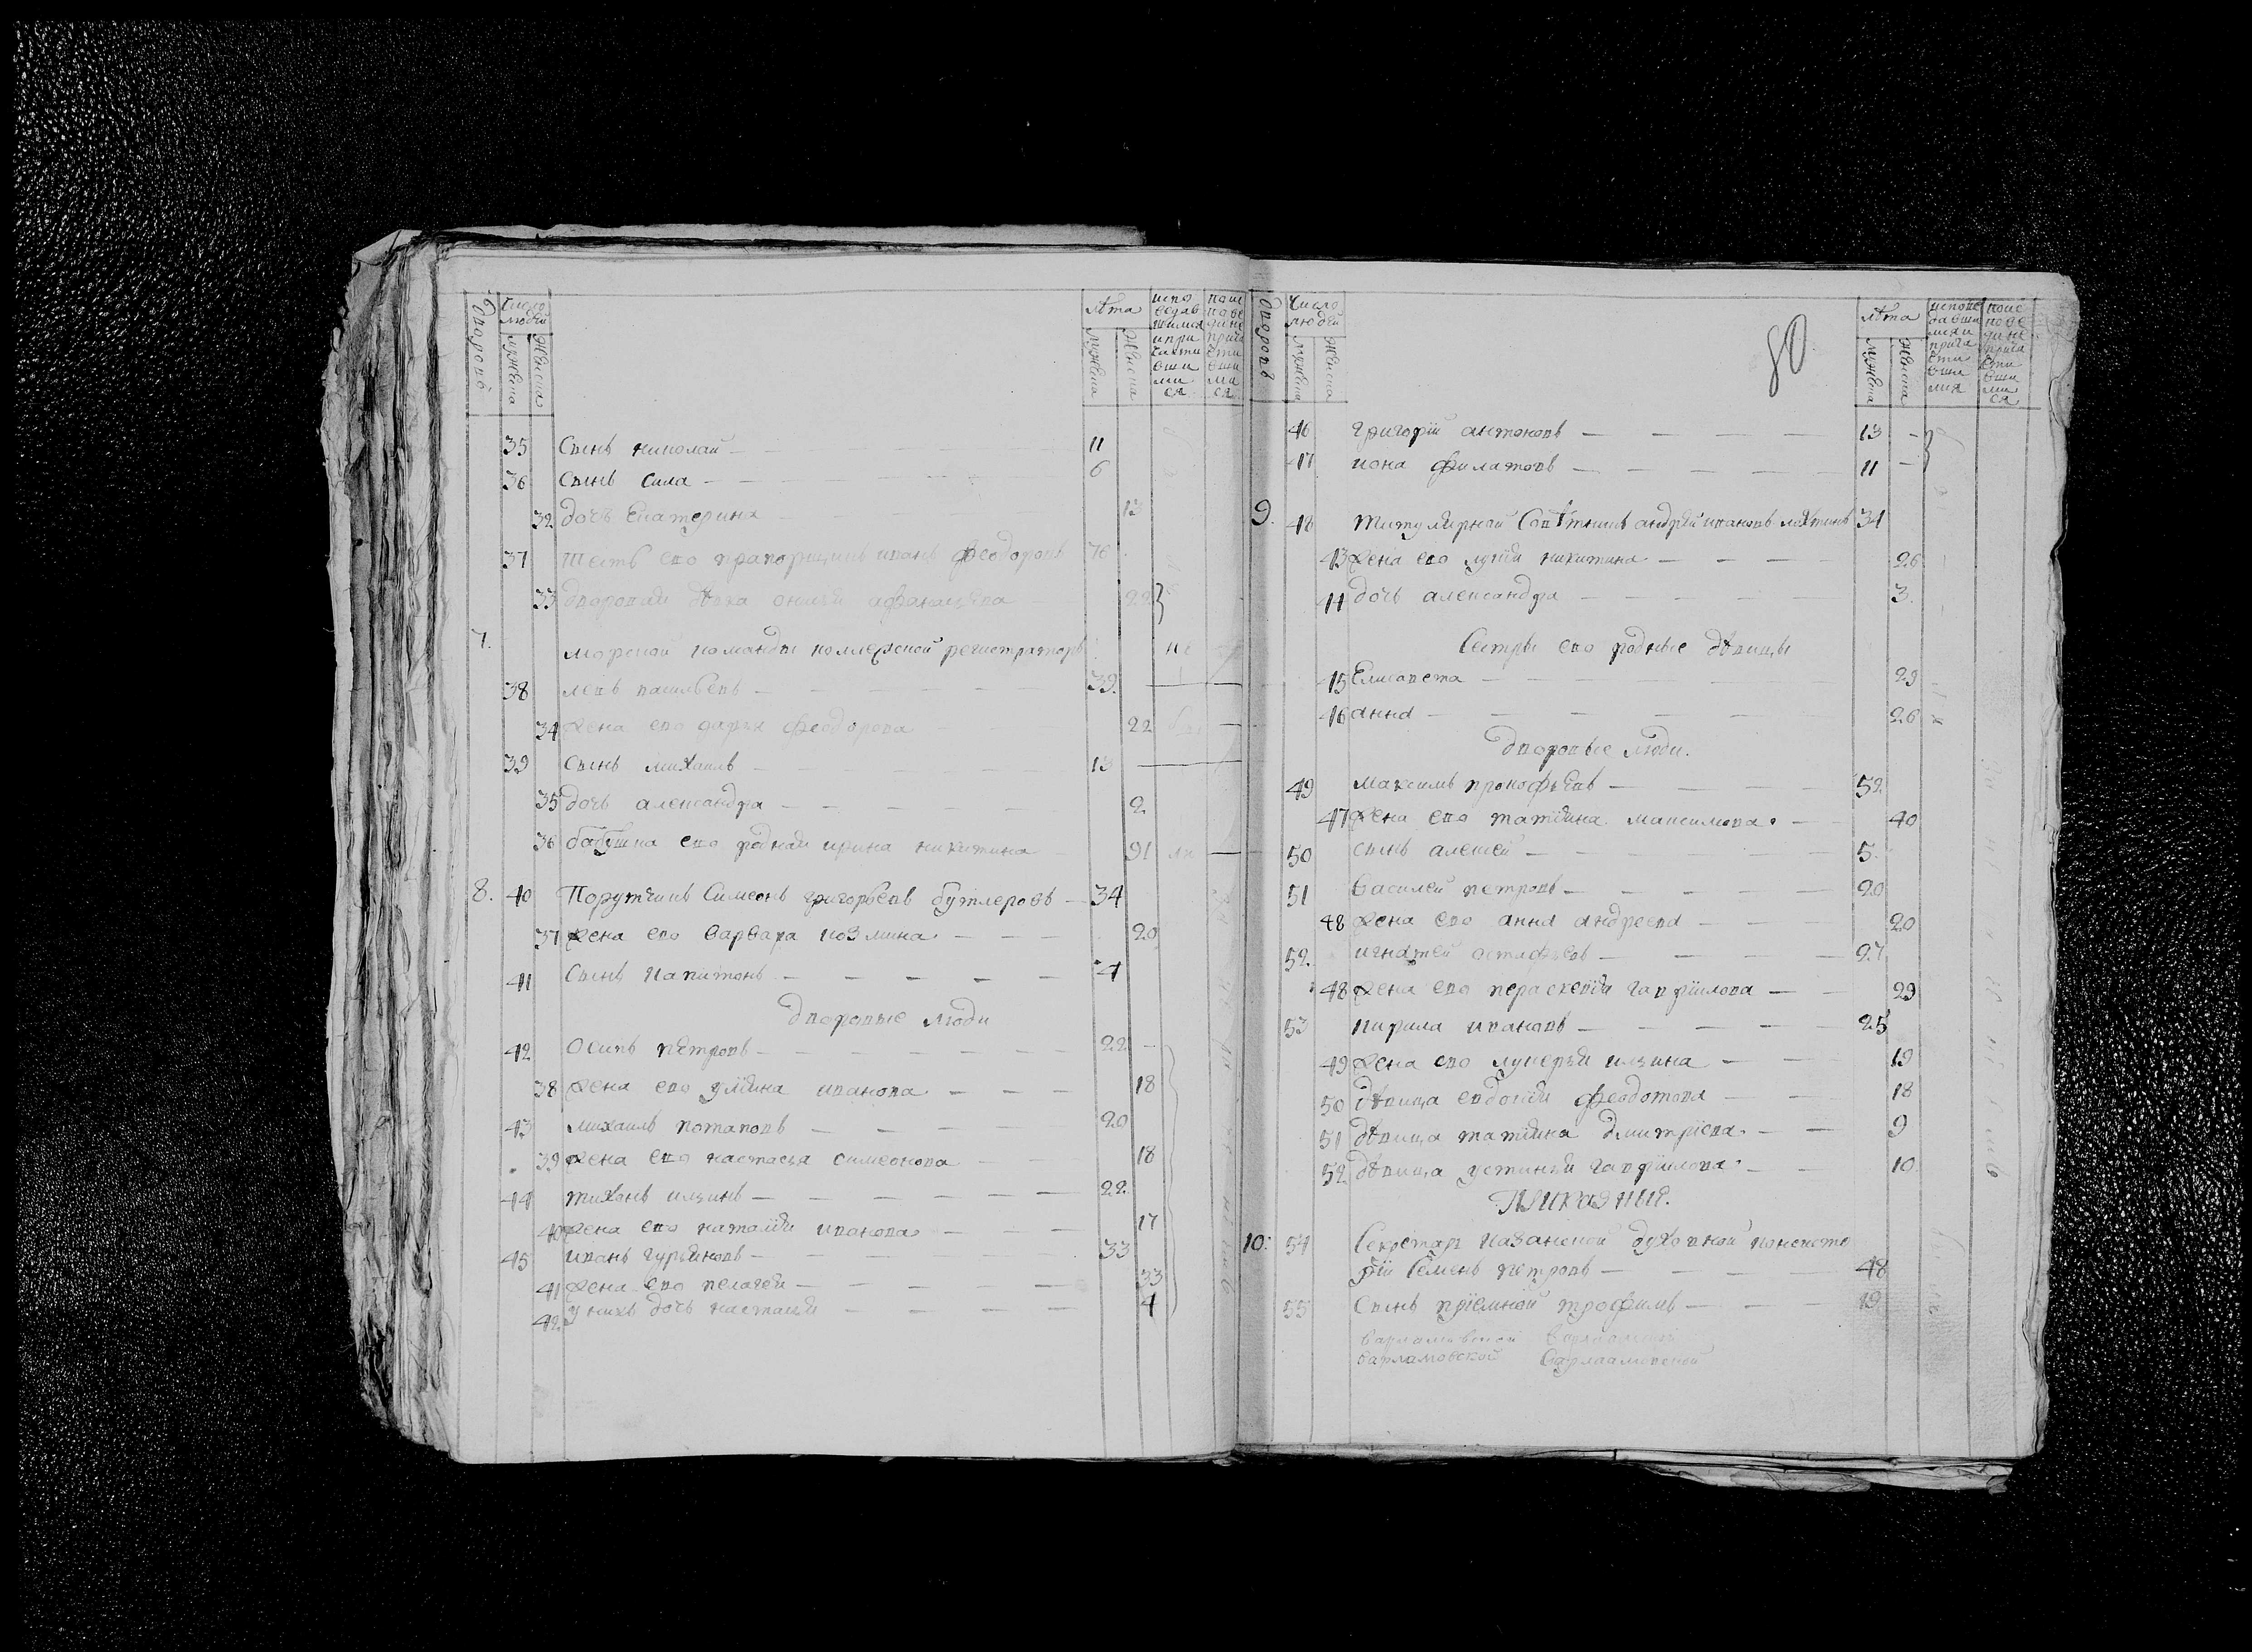 дворовъ
число людей
мужеска
женска
лѣта
мужеска
женска
35 Сынъ николай — 11
36 Сынъ Сила — 6
32 дочь Екатерина 13
37 Тесть его прапорщикъ иванъ феодоровъ 76
33 22
7. морской команды коллежской регистраторъ
38 левъ васильевъ — 39.
34 жена его дарья феодорова 22
39 Сынъ михаилъ — 13
35 дочь александра — 2
36 бабушка его родная ирина никитина 91
8. 40 Порутчикъ Симеонъ григорьевъ бутлеровъ — 34
37 жена его варвара козмина — 20
41 Сынъ капитонъ — 4
дворовые люди
42 Осипъ петровъ — 22
38 жена его улияна иванова — 18
43 михаилъ потаповъ — 20
39 жена его настасья симеонова 18
44 тихонъ ильинъ — 22
40 жена его наталия иванова — 17
45 иванъ гурьяновъ — 33
41 жена его пелагея — 33
42. у нихъ дочь настасия — 4
дворовъ
число людей
мужеска
женска
80
лѣта
мужеска
женска
46 григорїй антоновъ — 13
47 иона филатовъ — 11
9. 48 титулярной Совѣтникъ андрей ивановъ 34
43 жена его никитина — 26
44 дочь александра — 3.
Сестры его родные дѣвицы
45 Елисавета — 29
46 анна — 26
дворовые люди.
49 максимъ прокофьевъ — 52
47 жена его татияна максимова — 40
50 сынъ алексей — 5
51 василей петровъ — 20
48 жена его анна андреева — 20
52. игнатей астафьевъ — 27
48 жена его параскевия гаврїилова — 29
53 кирила ивановъ — 25
49 жена его лукерья ильина — 19
50 дѣвица евдокия феодотова — 18
51 дѣвица татияна дмитрїева — 9
52 дѣвица устиния гаврїилова — 10
Приказныя.
10: 54 Секретарь казанской духовной консисто
рїи Семенъ петровъ — 48
55 Сынъ прїемной трофимъ — 19
варламовской варлаамовской